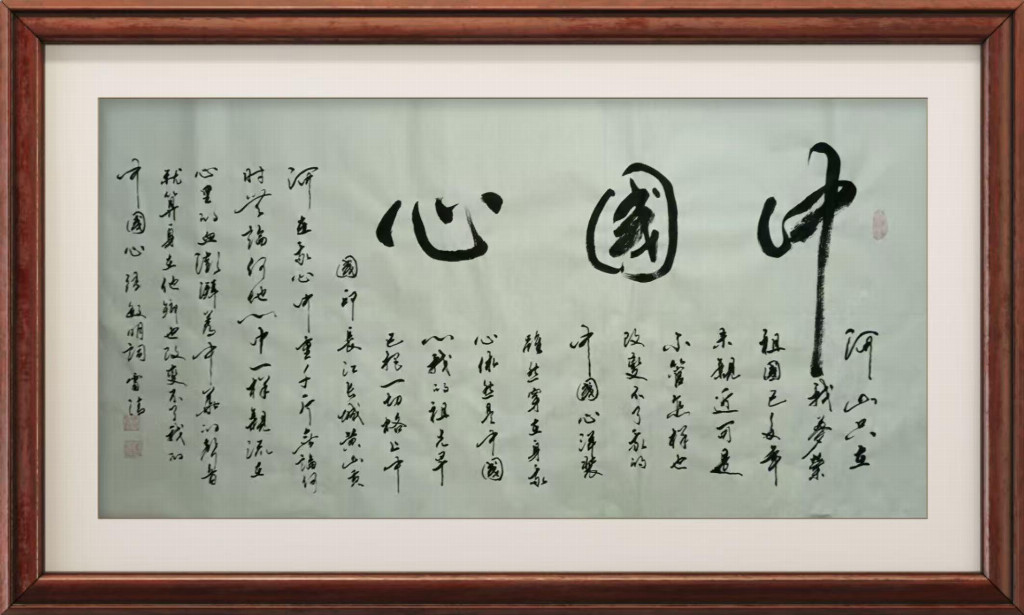 中國心
河山只在
我夢縈
祖國已多年
未親近可是
不管怎樣也
改變不了我的
中國心洋裝
雖然穿在身我
心依然是中國
心我的祖先早
已把一切烙上中
國印長江長城黄山黄
河在我心中重千斤無論何
时無論何地心中一樣親流在
心里的血澎湃着中華的聲音
就算身在他鄉也改變不了我的
中國心張敏明詞